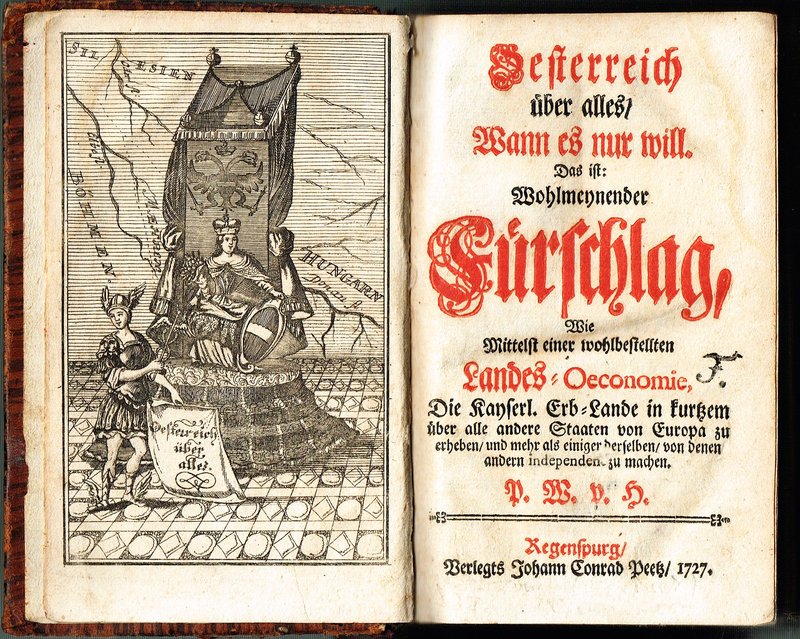 SILESIEN
BÖHMEN.
HUNGARN
Oesterreich
über
alles.
Oesterreich
über alles/
Wann es nur will.
Das ist:
Wohlmeynender
Fürschlag,
Wie
Mittelst einer wohlbestellten
Landes-Oeconomie,
Die Kayserl. Erb-Lande in kurtzem
über alle andere Staaten von Europa zu
erheben/ und mehr als einiger derselben/ von denen
andern independent zu machen.
P. W. v. H.
Regenspurg/
Verlegts Johann Conrad Peetz/ 1727.
F.